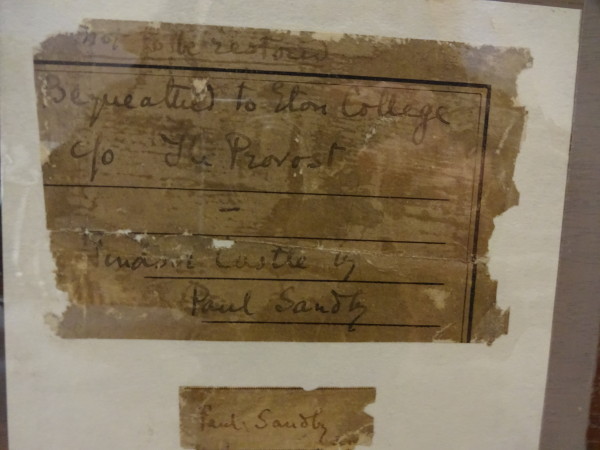 not to be restored
Bequeathed to Eton College
c/o The Provost
–
Windsor Castle by
Paul Sandby
Paul Sandby